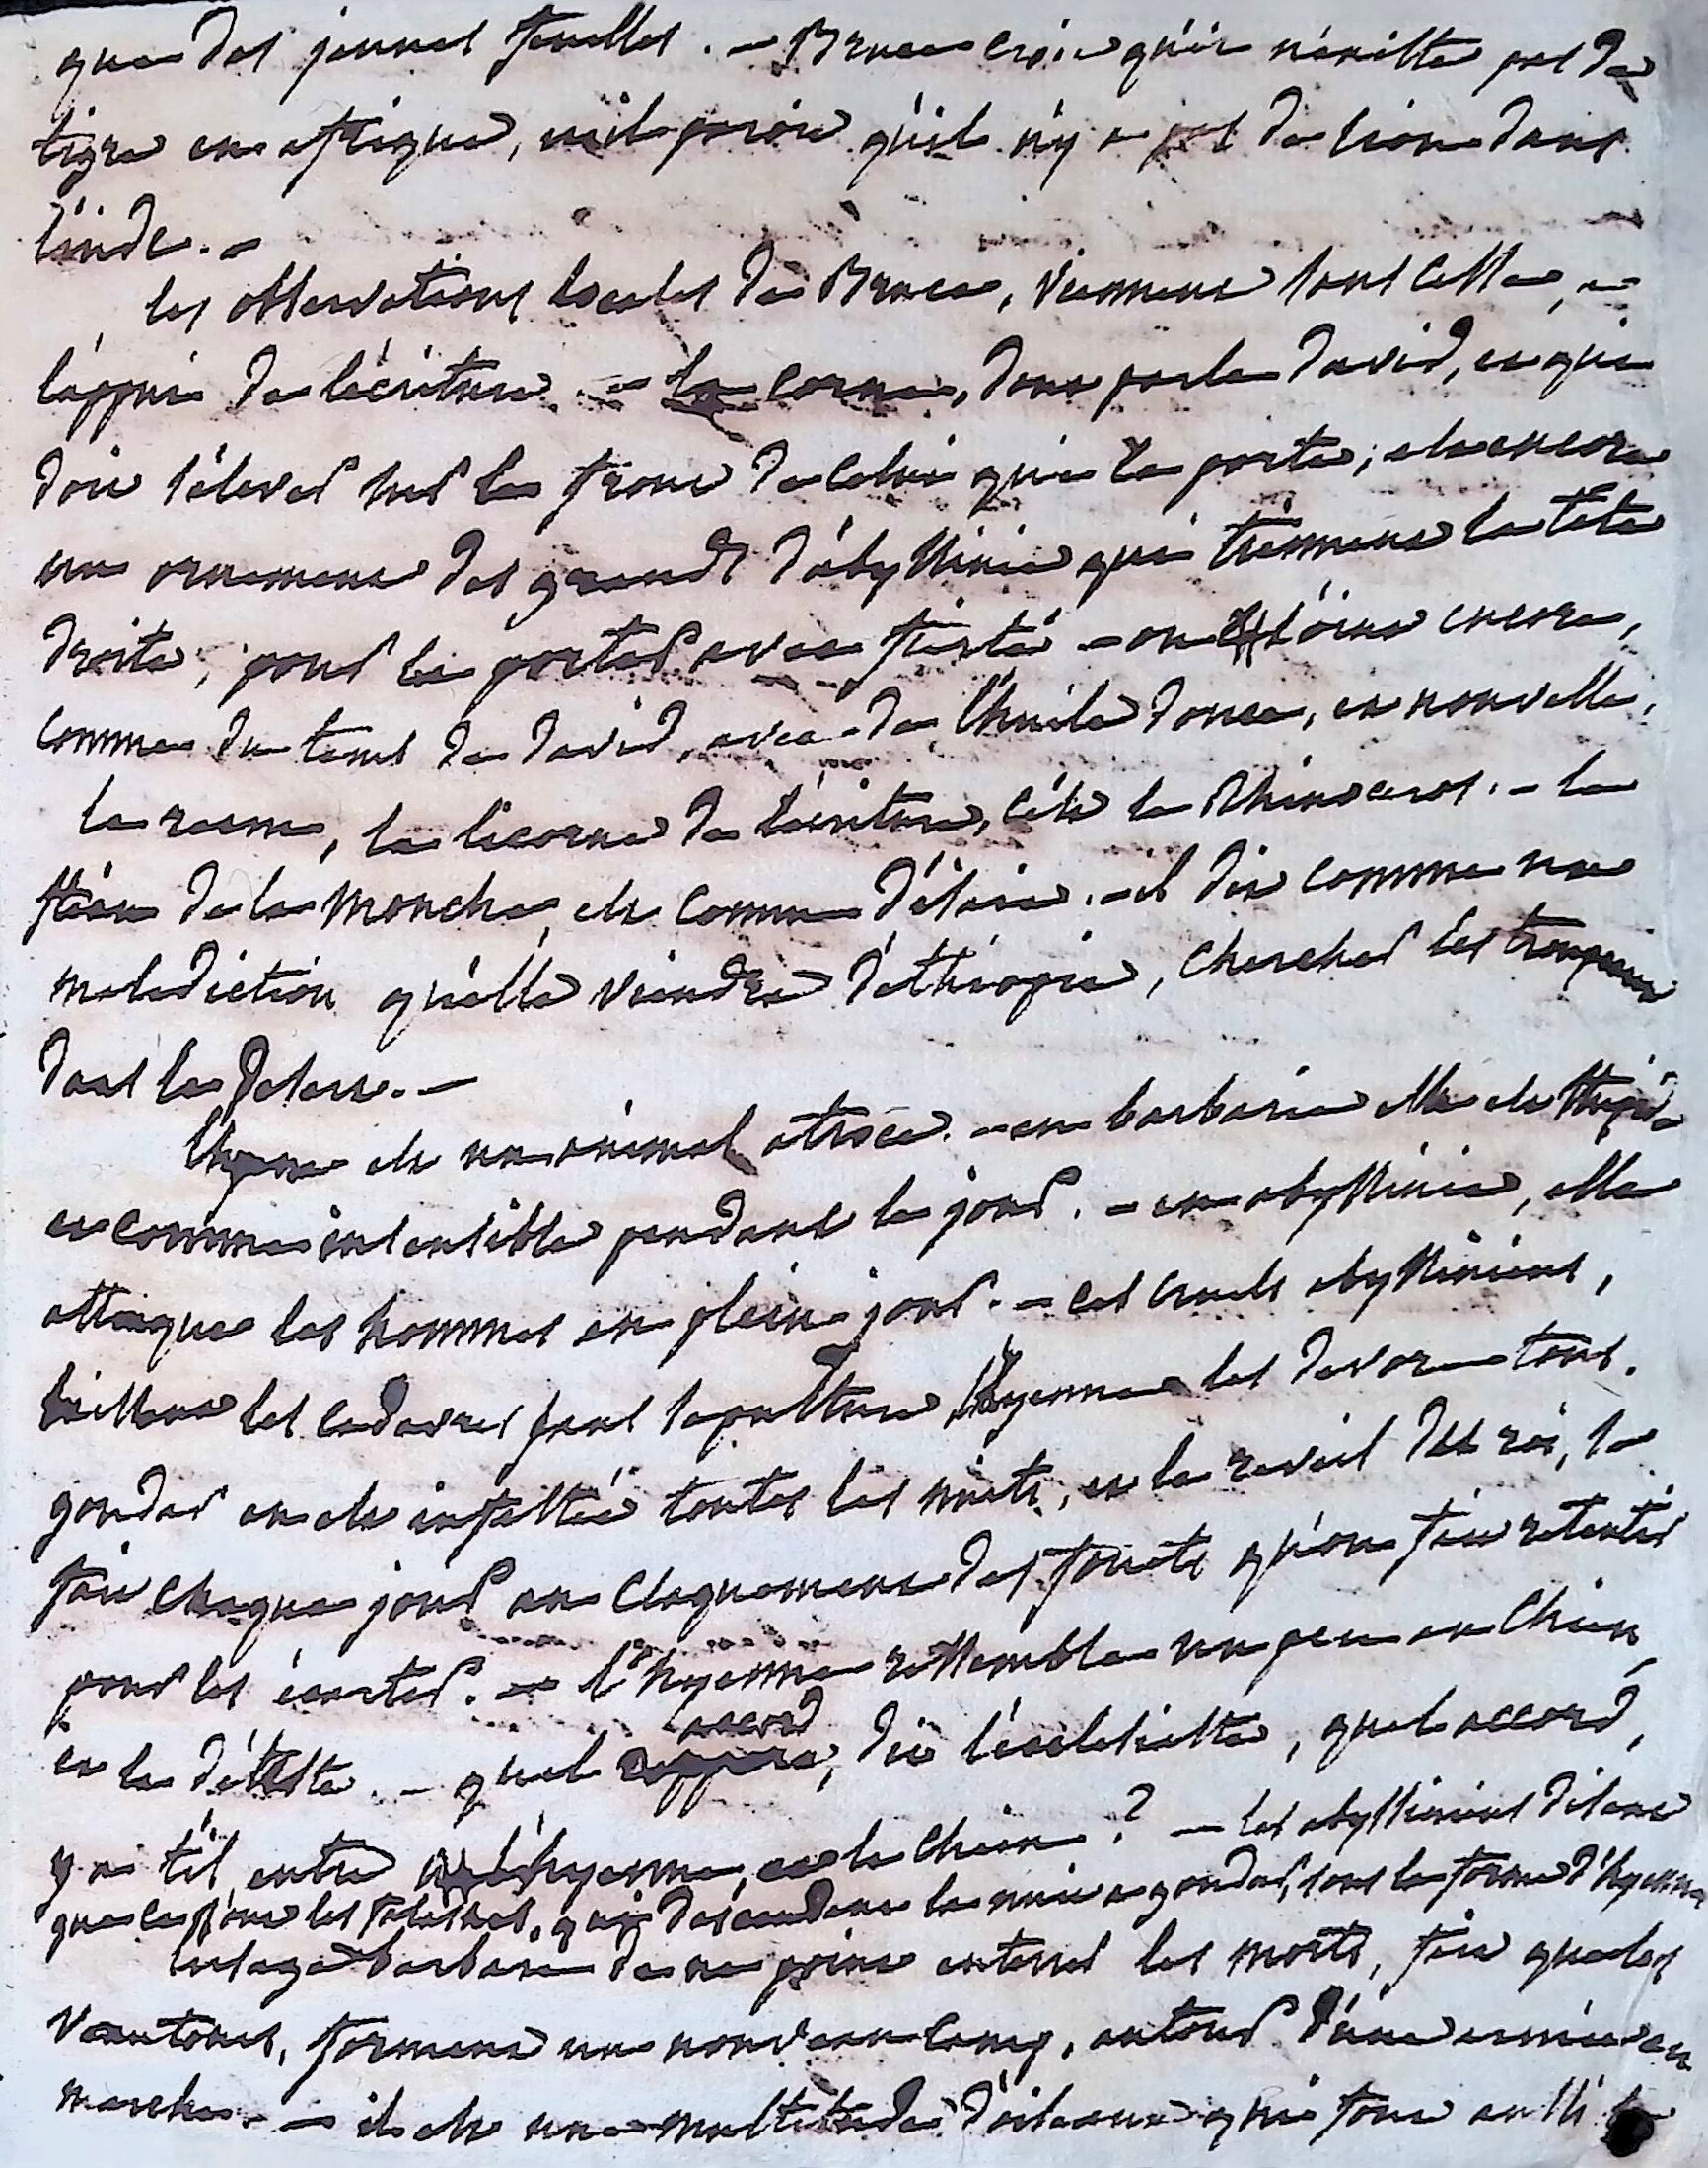 que des jeunes femelles. - Bruce croit qu'il n'existe pas de
tigre en affrique, et il paroit qu'il n'y a pas de lion dans
l'inde. -
les observations locales de Bruce, viennent sans cesse, a
l'appui de l'écriture - la corne, dont parle david, et qui
doit s'élever sur le front de celui qui la porte, est encore
un ornement des grands d'abyssinie qui tiennent la tête
droite, pour la porter avec fierté - on s'oint encore,
comme du tems de david, avec de l'huile douce, et nouvelle,
le reem, la licorne de l'écriture, c'est le Rhinoceros. - le
fléau de la mouche, est connu d'isaïe. - il dit comme une
malediction qu'elle viendra d'ethiopie, chercher les troupeaux
dans le desert. -
l'hyene est un animal atroce. - en barbarie elle est stupide
et comme insensible pendant le jour. - en abyssinie, elle
attaque les hommes en plein jour. - les cruels abyssiniens,
laissent les cadavres sans sepulture, l'hyenne les devore tous.
gondar en est infestée toutes les nuits, et le reveil du roi, se
fait chaque jour au claquement des fouets qu'on fait retentir
pour les écarter. - l'hyenne ressemble un peu au chien,
et le déteste. - quel accord, dit l'ecclesiaste, quel accord,
y a t'il entre l'hyenne, et le chien? - les abyssiniens disent
que ce sont les falashas, qui descendent la nuit a gondar, sous la forme d'hyennes
l'usage barbare de ne point enterrer les morts, fait que les
vautours, forment un nouveau camp, autour d'une armée en
marche. - il est une multitude d'oiseaux qui sont aussi